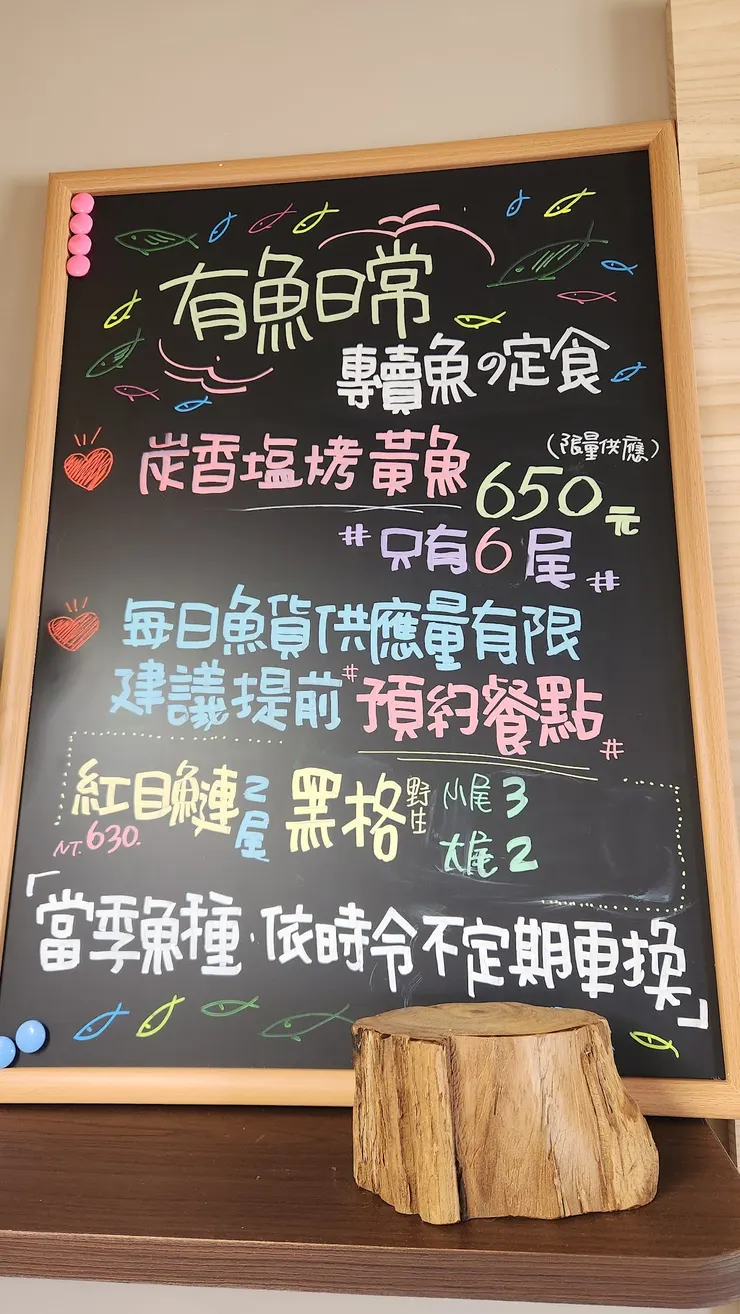 有魚日常
專賣魚の定食
炭香塩烤黃魚 650元
(限量供應)
#只有6尾#
每日魚貨供應量有限
建議提前#預約餐點#
紅目鰱 2尾 黑格 野生 小尾3
NT.630. 大尾2
「當季魚種·依時令不定期更換」